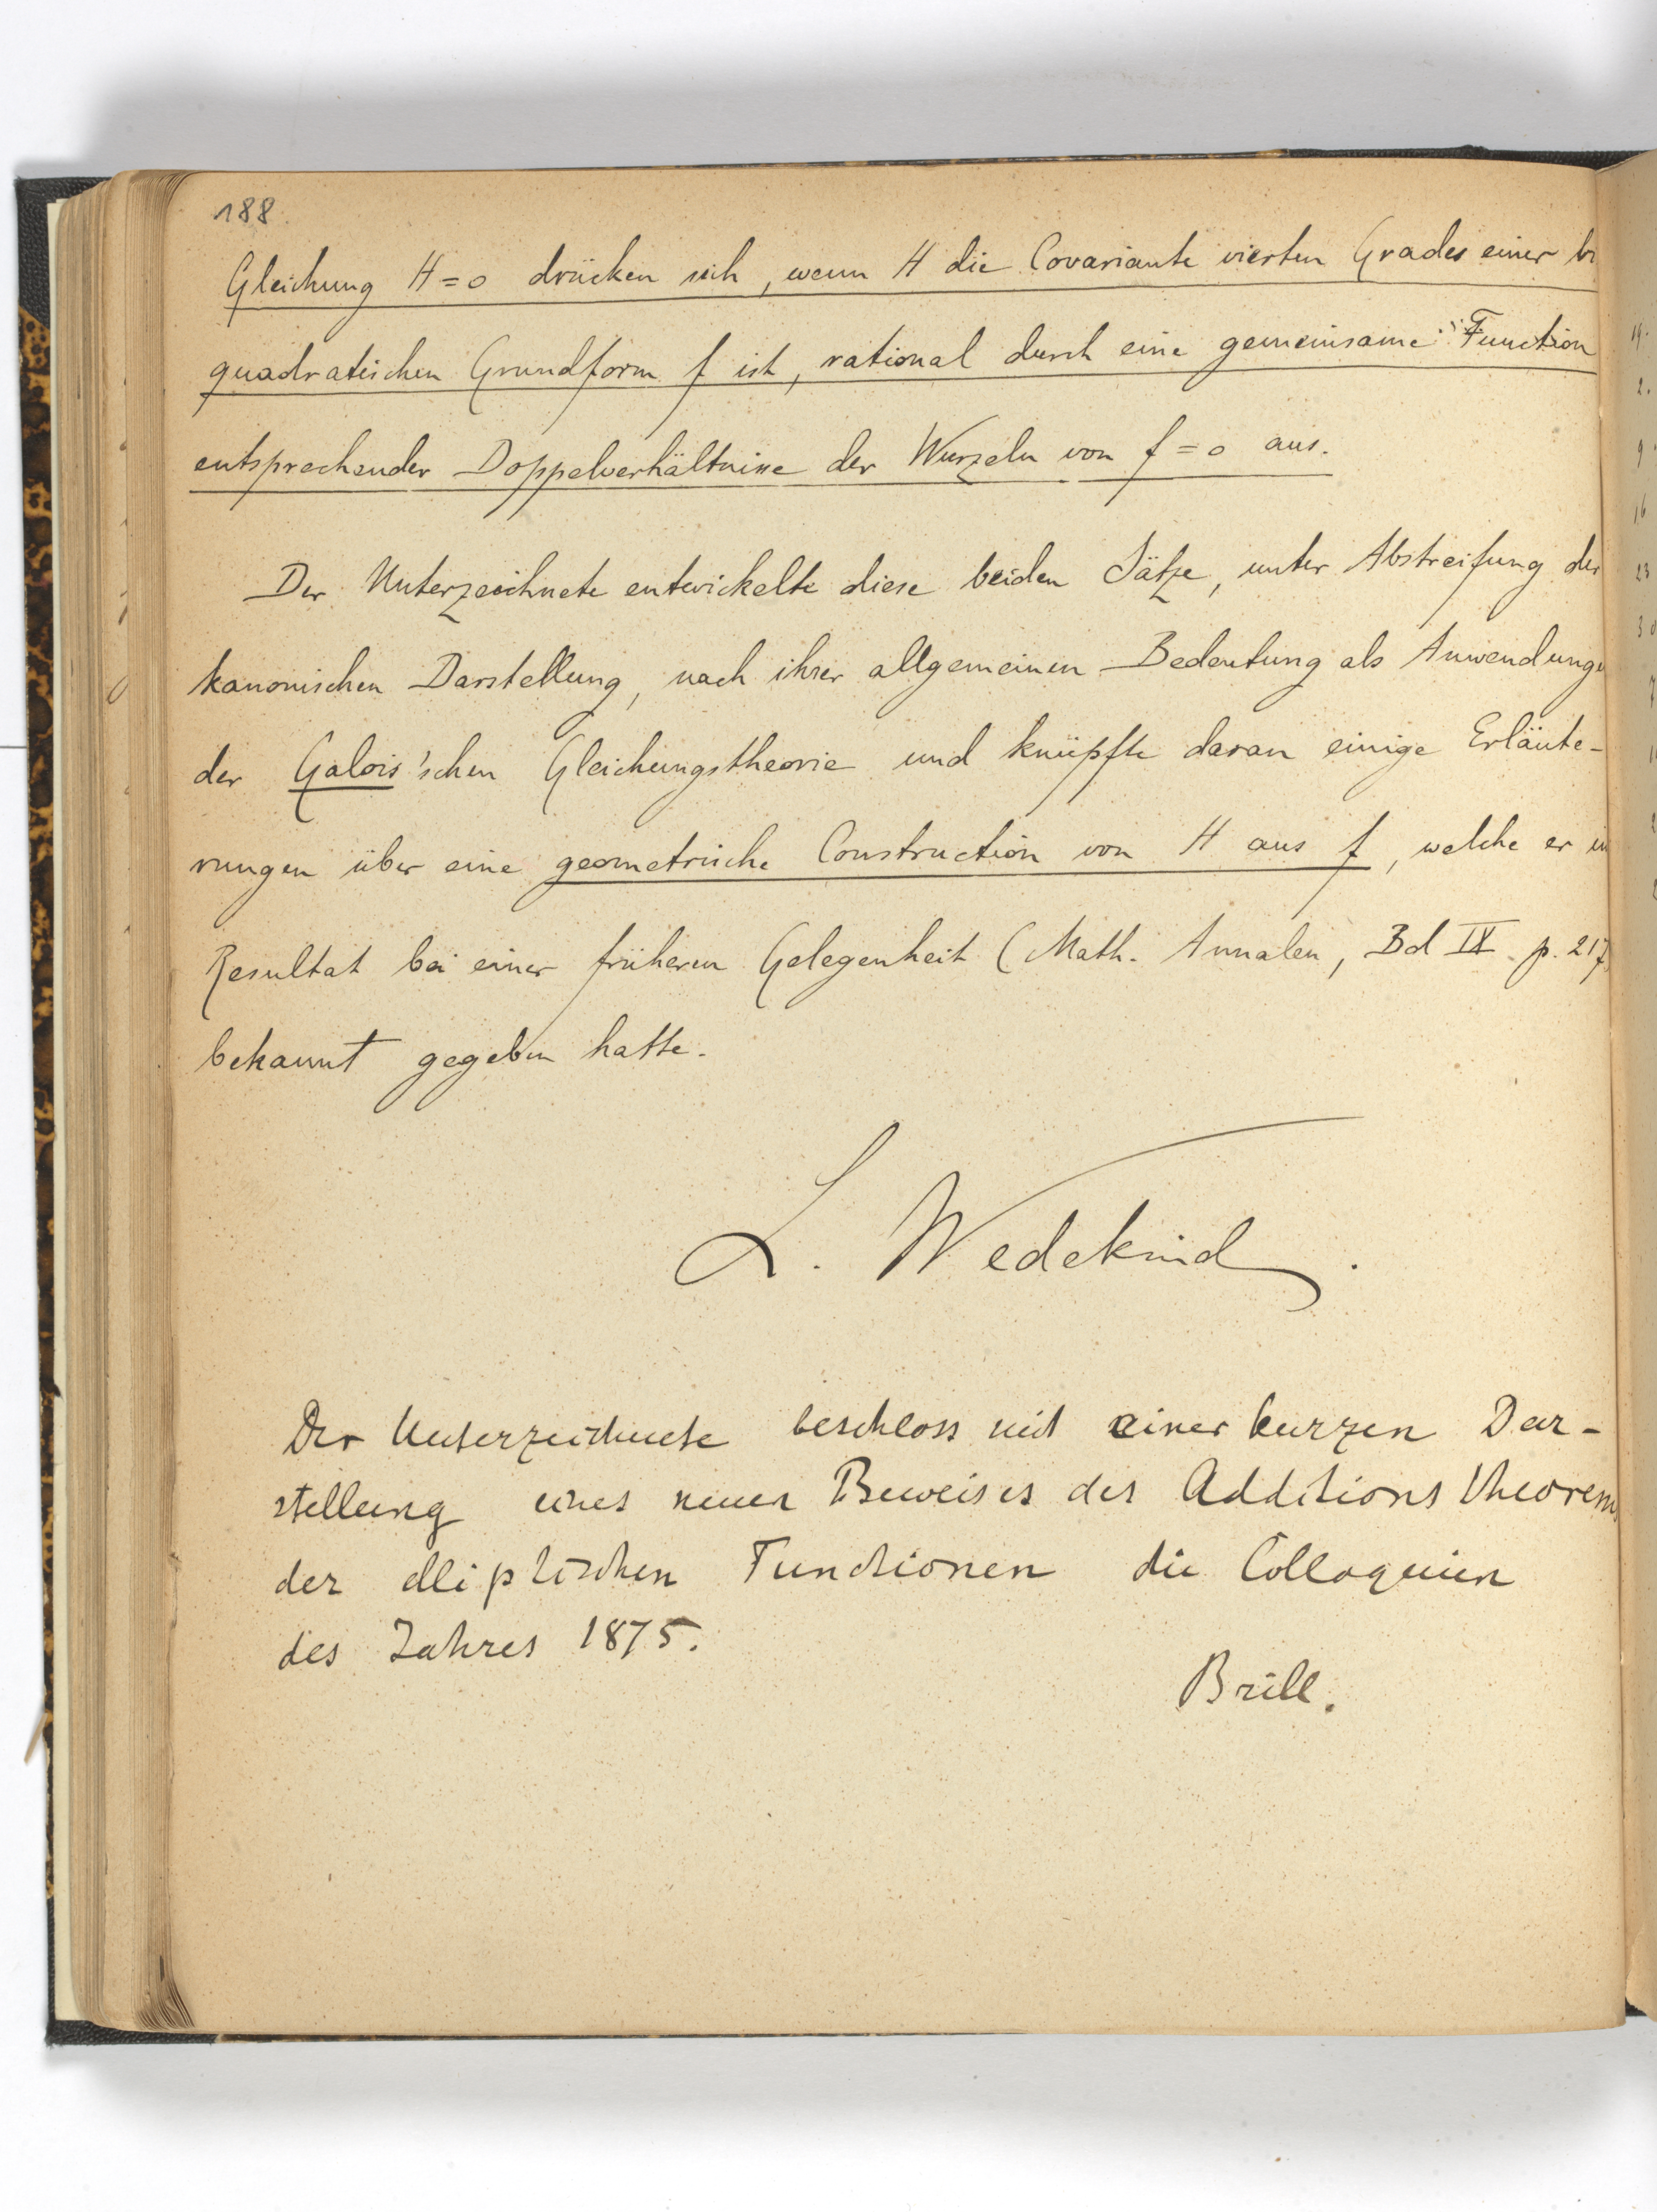 188.
Gleichung H = 0 drücken sich, wenn H die Covariante vierten Grades einer bi
quadratischen Grundform f ist, rational durch eine gemeinsame Function
entsprechender Doppelverhältnisse der Wurzeln von f = 0 aus.
Der Unterzeichnete entwickelte diese beiden Sätze, unter Abstreifung der
kanonischen Darstellung, nach ihrer allgemeinen Bedeutung als Anwendunge
der Galois'schen Gleichungstheorie und knüpfte daran einige Erläute-
rungen über eine geometrische Construction von H aus f, welche er im
Resultat bei einer früheren Gelegenheit (Math. Annalen, Bd IX p. 217
bekannt gegeben hatte.
L. Wedekind.
Der Unterzeichnete beschloss mit einer kurzen Dar-
stellung eines neuen Beweises des Additions theorems
der elliptischen Functionen die Colloquien
des Jahres 1875.
Brill.
19.
2.
9
16
23
30